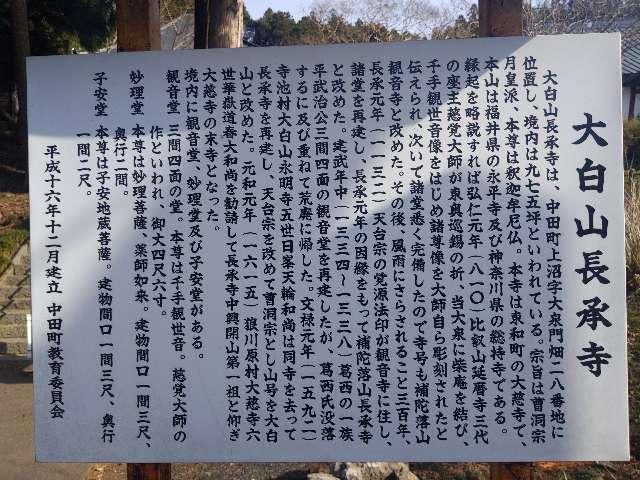 大白山長承寺
大白山長承寺は、中田町上沼字大泉門畑二八番地に
位置し、境内は九七五坪といわれている。宗旨は曹洞宗
月皇派、本尊は釈迦牟尼仏。本寺は東和町の大慈寺で、
本山は福井県の永平寺及び神奈川県の総持寺である。
縁起を略説すれば弘仁元年（八一〇）比叡山延暦寺三代
の座主慈覚大師が東奥巡錫の折、当大泉に柴庵を結び、
千手観世音像をはじめ諸尊像を大師自ら彫刻されたと
伝えられ、次いで諸堂悉く完備したので寺号も補陀落山
観音寺と改めた。その後、風雨にさらされること三百年、
長承元年（一一三二）天台宗の覚源法印が観音寺に住し、
諸堂を再建し、長承元年の因縁をもって補陀落山長承寺
と改めた。建武年中（一三三四〜一三三八）葛西の一族
平武治公三間四面の観音堂を再建したが、葛西氏没落
するに及び重ねて荒廃に帰した。文禄元年（一五九二）
寺池村大白山永明寺五世日峯天輪和尚は同寺を去って
長承寺を再建し、天台宗を改めて曹洞宗とし山号を大白
山と改めた。元和元年（一六一五）狼川原村大慈寺六
世華嶽道春大和尚を勧請して長承寺中興開山第一祖と仰ぎ
大慈寺の末寺となった。
境内に観音堂、妙理堂及び子安堂がある。
観音堂　三間四面の堂。本尊は千手観世音。慈覚大師の
作といわれ、御丈四尺六寸。
妙理堂　本尊は妙理菩薩、薬師如来。建物間口一間三尺、
奥行二間。
子安堂　本尊は子安地蔵菩薩。建物間口一間三尺、奥行
一間二尺。
平成十六年十二月建立　中田町教育委員会